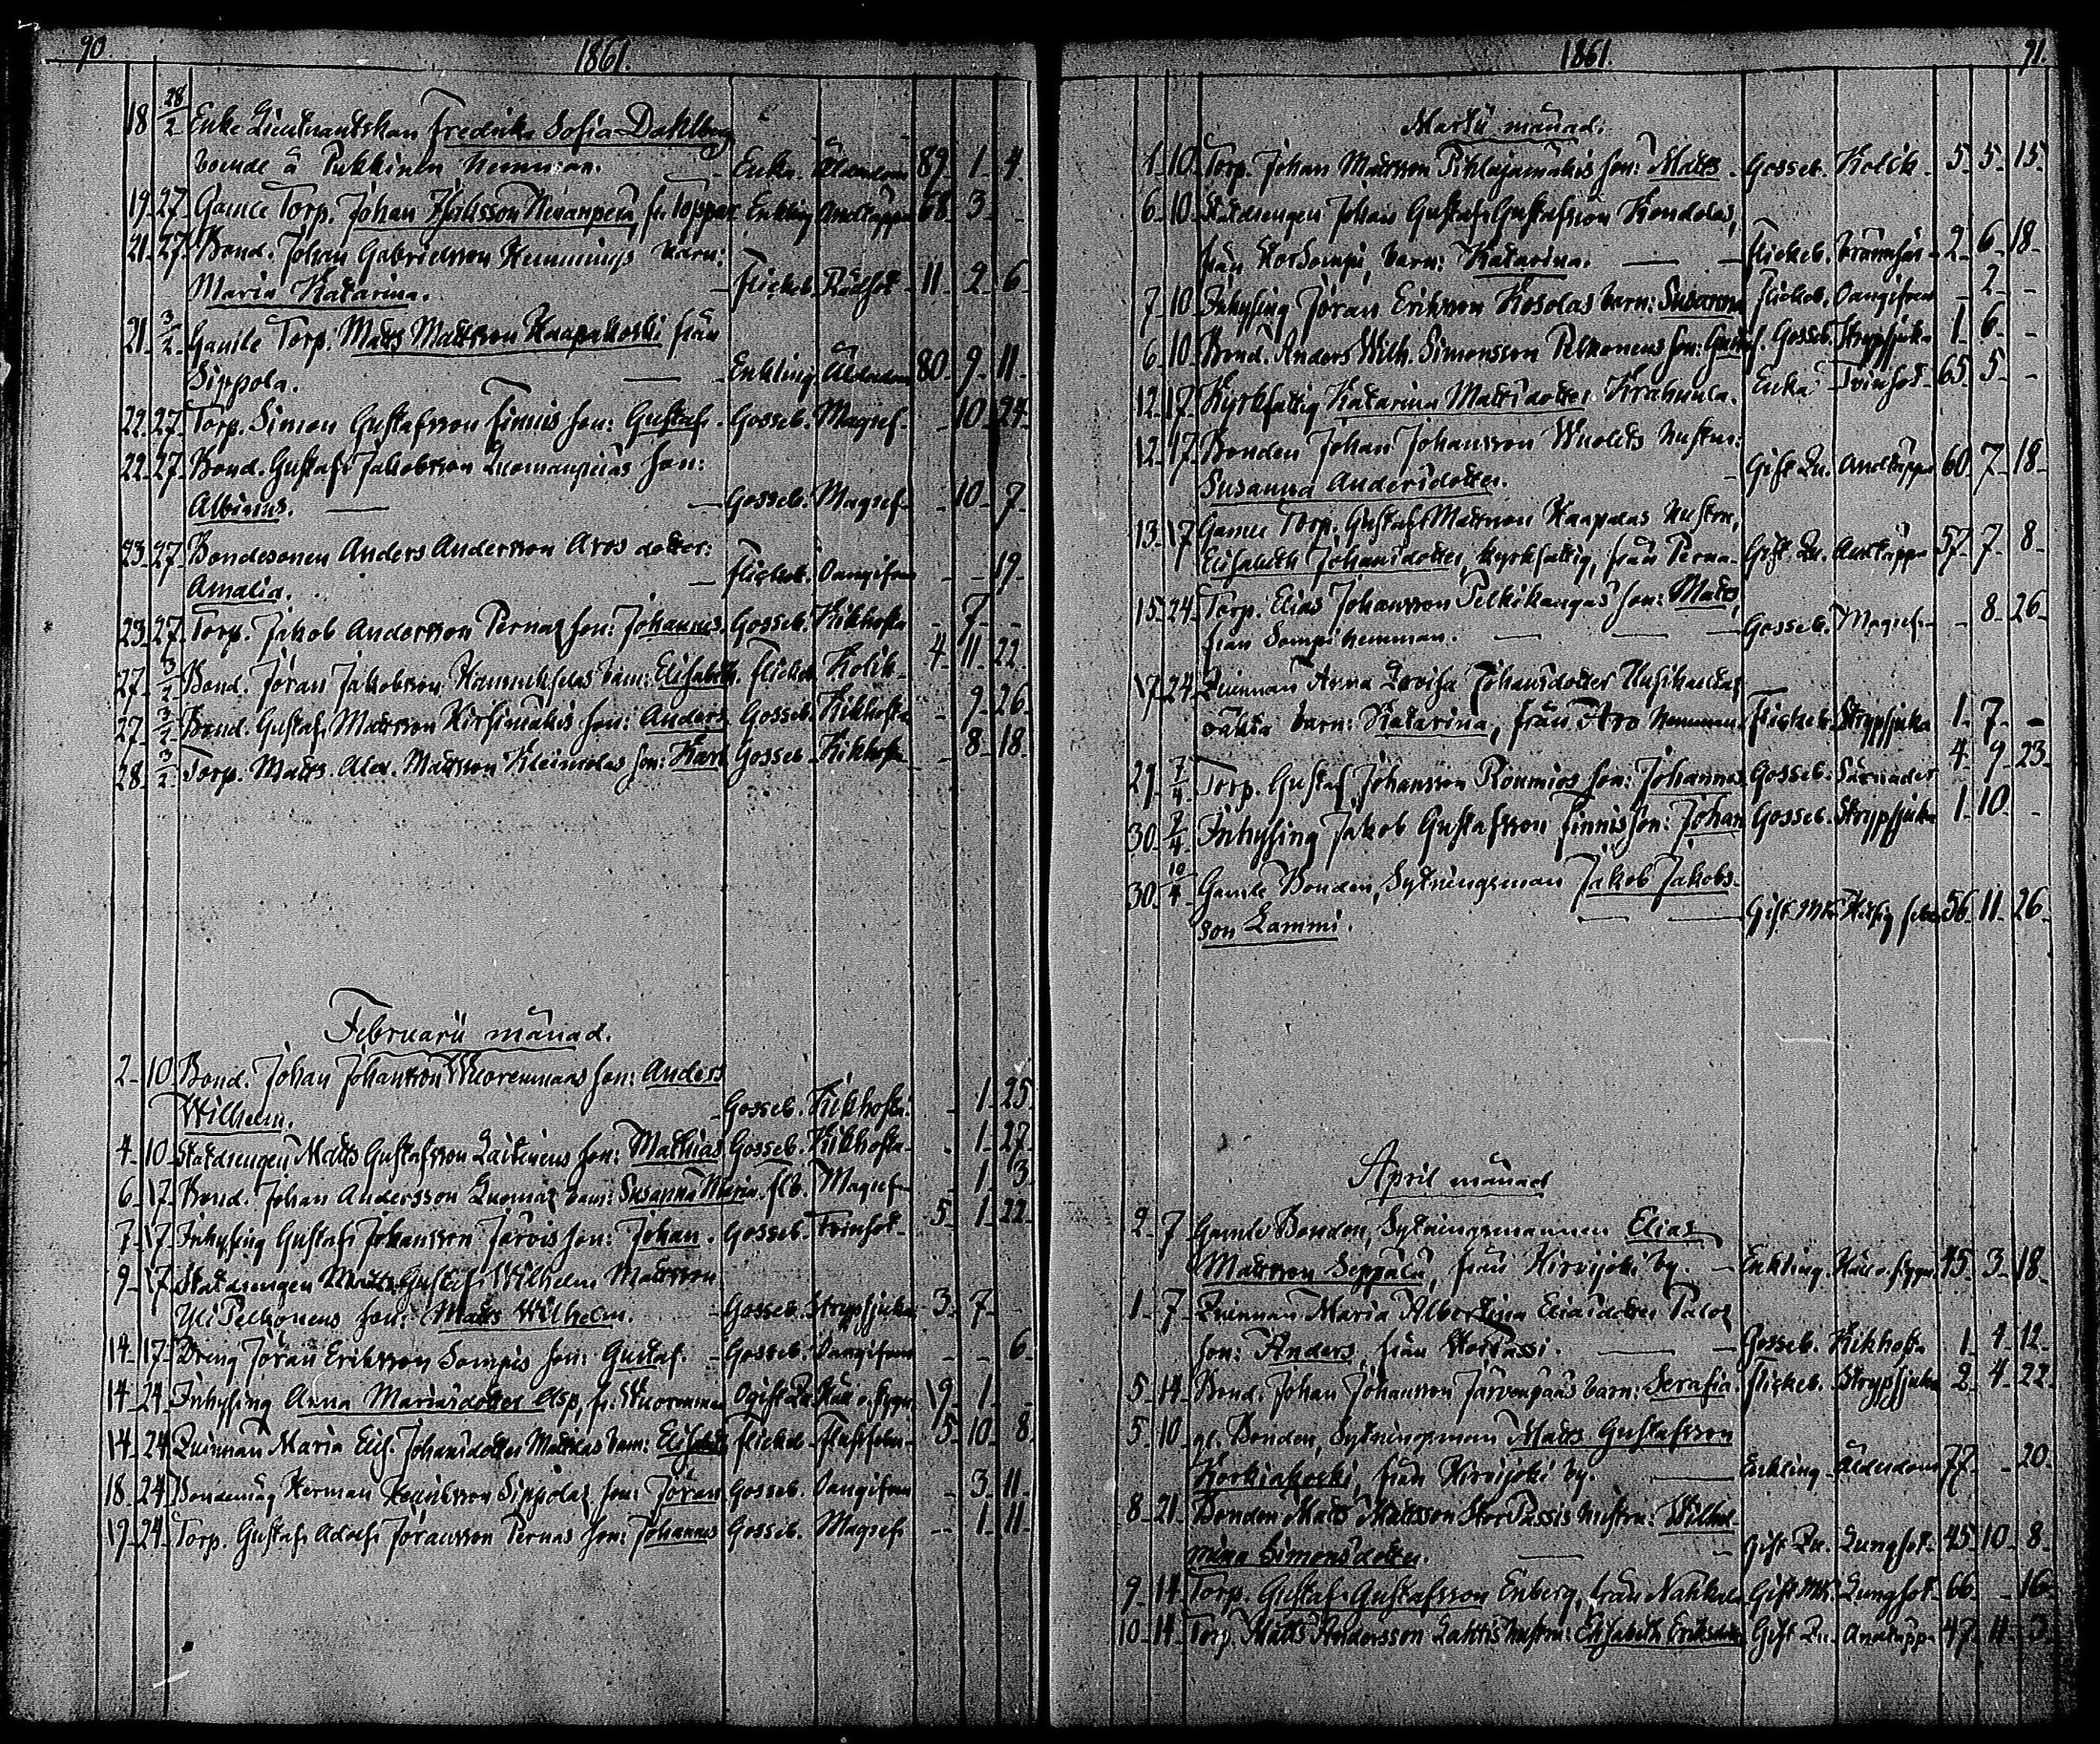 90. 1861.
18 28/2 Enke Lieutnantskan Fredrika Sofia Dahlberg
boende å Pukkinen hemman. - Enka. Ålderdom 89 1 4
19 27 Gamle Torp. Johan fr. Toppar Enkling Andtäppa 68 3 -
21 27 Bond. Johan Gabrielsson Hemmings barn:
Maria Katarina. - Flickeb. Rödsot 11 2 6
21 3/2 Gamle Torp. Matts Mattsson Haapakoski från
Sippola. - Enkling Ålderdom 80 9 11
22 27 Torp. Simon Gustafsson Finnis son: Gustaf. Gosseb. Magref. - 10 24
22 27 Bond. Gustaf Jakobsson son:
Albinus. - Gosseb. Magref. - 10 7
23 27 Bondesonen Anders Andersson Aros dotter:
Amalia. - Flickeb. Oangifven - - 19
23 27 Torp. Jakob Andersson Pernas son: Johannes. Gosseb. Kikhosta - 7 -
27 3/2 Bond. Jöran Jakobsson barn: Elisabeth. Flickeb. Kolik 4 11 22
27 3/2 Bond. Gustaf Mattsson Kirsimäkis son: Anders Gosseb. Kikhosta - 9 26
28 3/2 Torp. Matts Alex. Mattsson Kleimolas son: Karl Gosseb. Kikhosta - 8 18
Februarii månad.
2 10 Bond. Johan Johansson Wuorenmaas son: Anders
Wilhelm. - Gosseb. Kikhosta - 1 25
4 10 Statdrengen Matts Gustafsson Laitinens son: Mathias Gosseb. Kikhosta - 1 27
6 17 Bond. Johan Andersson Luomas barn: Susanna Maria. Flb. Magref - 1 3
7 17 Inhysing Gustaf Johansson Järvis son: Johan. Gosseb. Tvinsot 5 1 22
9 17 Statdrengen Matts Gustaf Wilhelm Mattsson
Yli Pelkonens son: Matts Wilhelm. - Gosseb. Strypsjuka 3 7 -
14 17 Dreng Jöran Eriksson Sompis son: Gustaf. - Gosseb. Oangifven - - 6
14 24 Inhysing Anna Mariasdotter Asp, fr. Wuorenmaa Ogift Qu. 19 1 -
14 24 Quinnan Maria Elis. Johansdotter Mattilas barn: Elisabeth Flickeb. 5 10 8
18 24 Bondemåg Herman Henriksson Sippolas son: Jöran Gosseb. Oangifven - 3 11
19 24 Torp. Gustaf Adolf Jöransson Pernas son: Johannes Gosseb. Magref. - 1 11
1861. 91.
Martii månad.
1 10 Torp. Johan Mattsson Pihlajamäkis son: Matts. Gosseb. Kolik 5 5 15
6 10 Statdrengen Johan Gustaf Gustafsson Kondolas,
från StorSompi, barn: Katarina. - Flickeb. 2 6 18
7 10 Inhysing Jöran Eriksson Kosolas barn: Susanna Flickeb. Oangifven - 2 -
6 10 Bond. Anders Wilh. Simonsson Pelkonens son: Gustaf. Gosseb. Strypsjuka 1 6 -
12 17 Kyrkfattig Katarina Mattsdotter Krahnula. Enka Tvinsot 65 5 -
12 17 Bonden Johan Johansson hustru:
Susanna Andersdotter. - Gift Qu. Andtäppa 60 7 18
13 17 Gamle Torp. Gustaf Mattsson Haapalas hustru,
Elisabeth Johansdotter, kyrkfattig, från Perna. Gift Qu. Andtäppa 57 7 8
15 24 Torp. Elias Johansson Pelkikangas son: Matts,
från Sompi hemman. - Gosseb. Magref. - 8 26
17 24 Quinnan Anna Lovisa Johansdotter
oäkta barn: Katarina, från Aro hemman. Flickeb. Strypsjuka 1 7 -
29 7/4 Torp. Gustaf Johansson Roumios son: Johannes Gosseb. Särnader 4 9 23
30 7/4 Inhysing Jakob Gustafsson Finnis son: Johan Gosseb. Strypsjuka 1 10 -
30 10/4 Gamle Bonden, Sytningsman Jakob Jakobs-
son Lammi. - Gift Mk. 56 11 26
April månad
2 7 Gamle Bonden, Sytningsmannen Elias
Mattsson Seppälä, från Hirvijoki by. - Enkling. 45 3 18
1 7 Quinnan Maria Albertina Eliasdotter Palos
son: Anders, från StorPassi. - Gosseb. Kikhosta 1 4 12
5 14 Bond. Johan Johansson Järvenpääs barn: Serafia. Flickeb. Strypsjuka 2 4 22
5 10 gl. Bonden, Sytningsman Matts Gustafsson
Korkiakoski, från Hirvijoki by. - Enkling Ålderdom 77 - 20
8 21 Bonden Matts Mattsson StorPassis hustru: Wilhel-
mina Simonsdotter. - Gift Qu. Lungsot 45 10 8
9 14 Torp. Gustaf Gustafsson Enberg, från Gift Mk. Lungsot 66 - 16
10 14 Torp. Matts Andersson Lahtis hustru: Elisabeth Eriksdotter Gift Qu. Andtäppa 47 11 3